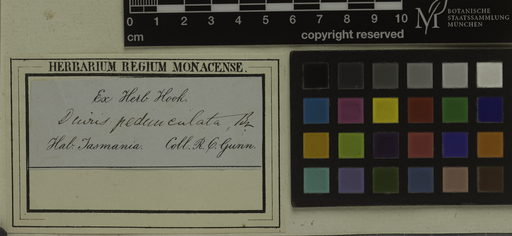 0 1 2 3 4 5 6 7 8 9 10
cm
copyright reserved
BOTANISCHE
STAATSSAMMLUNG
MÜNCHEN
HERBARIUM REGIUM MONACENSE.
Ex Herb Hook.
Diuris pedunculata, Br
Hab. Tasmania. Coll. R. C. Gunn.